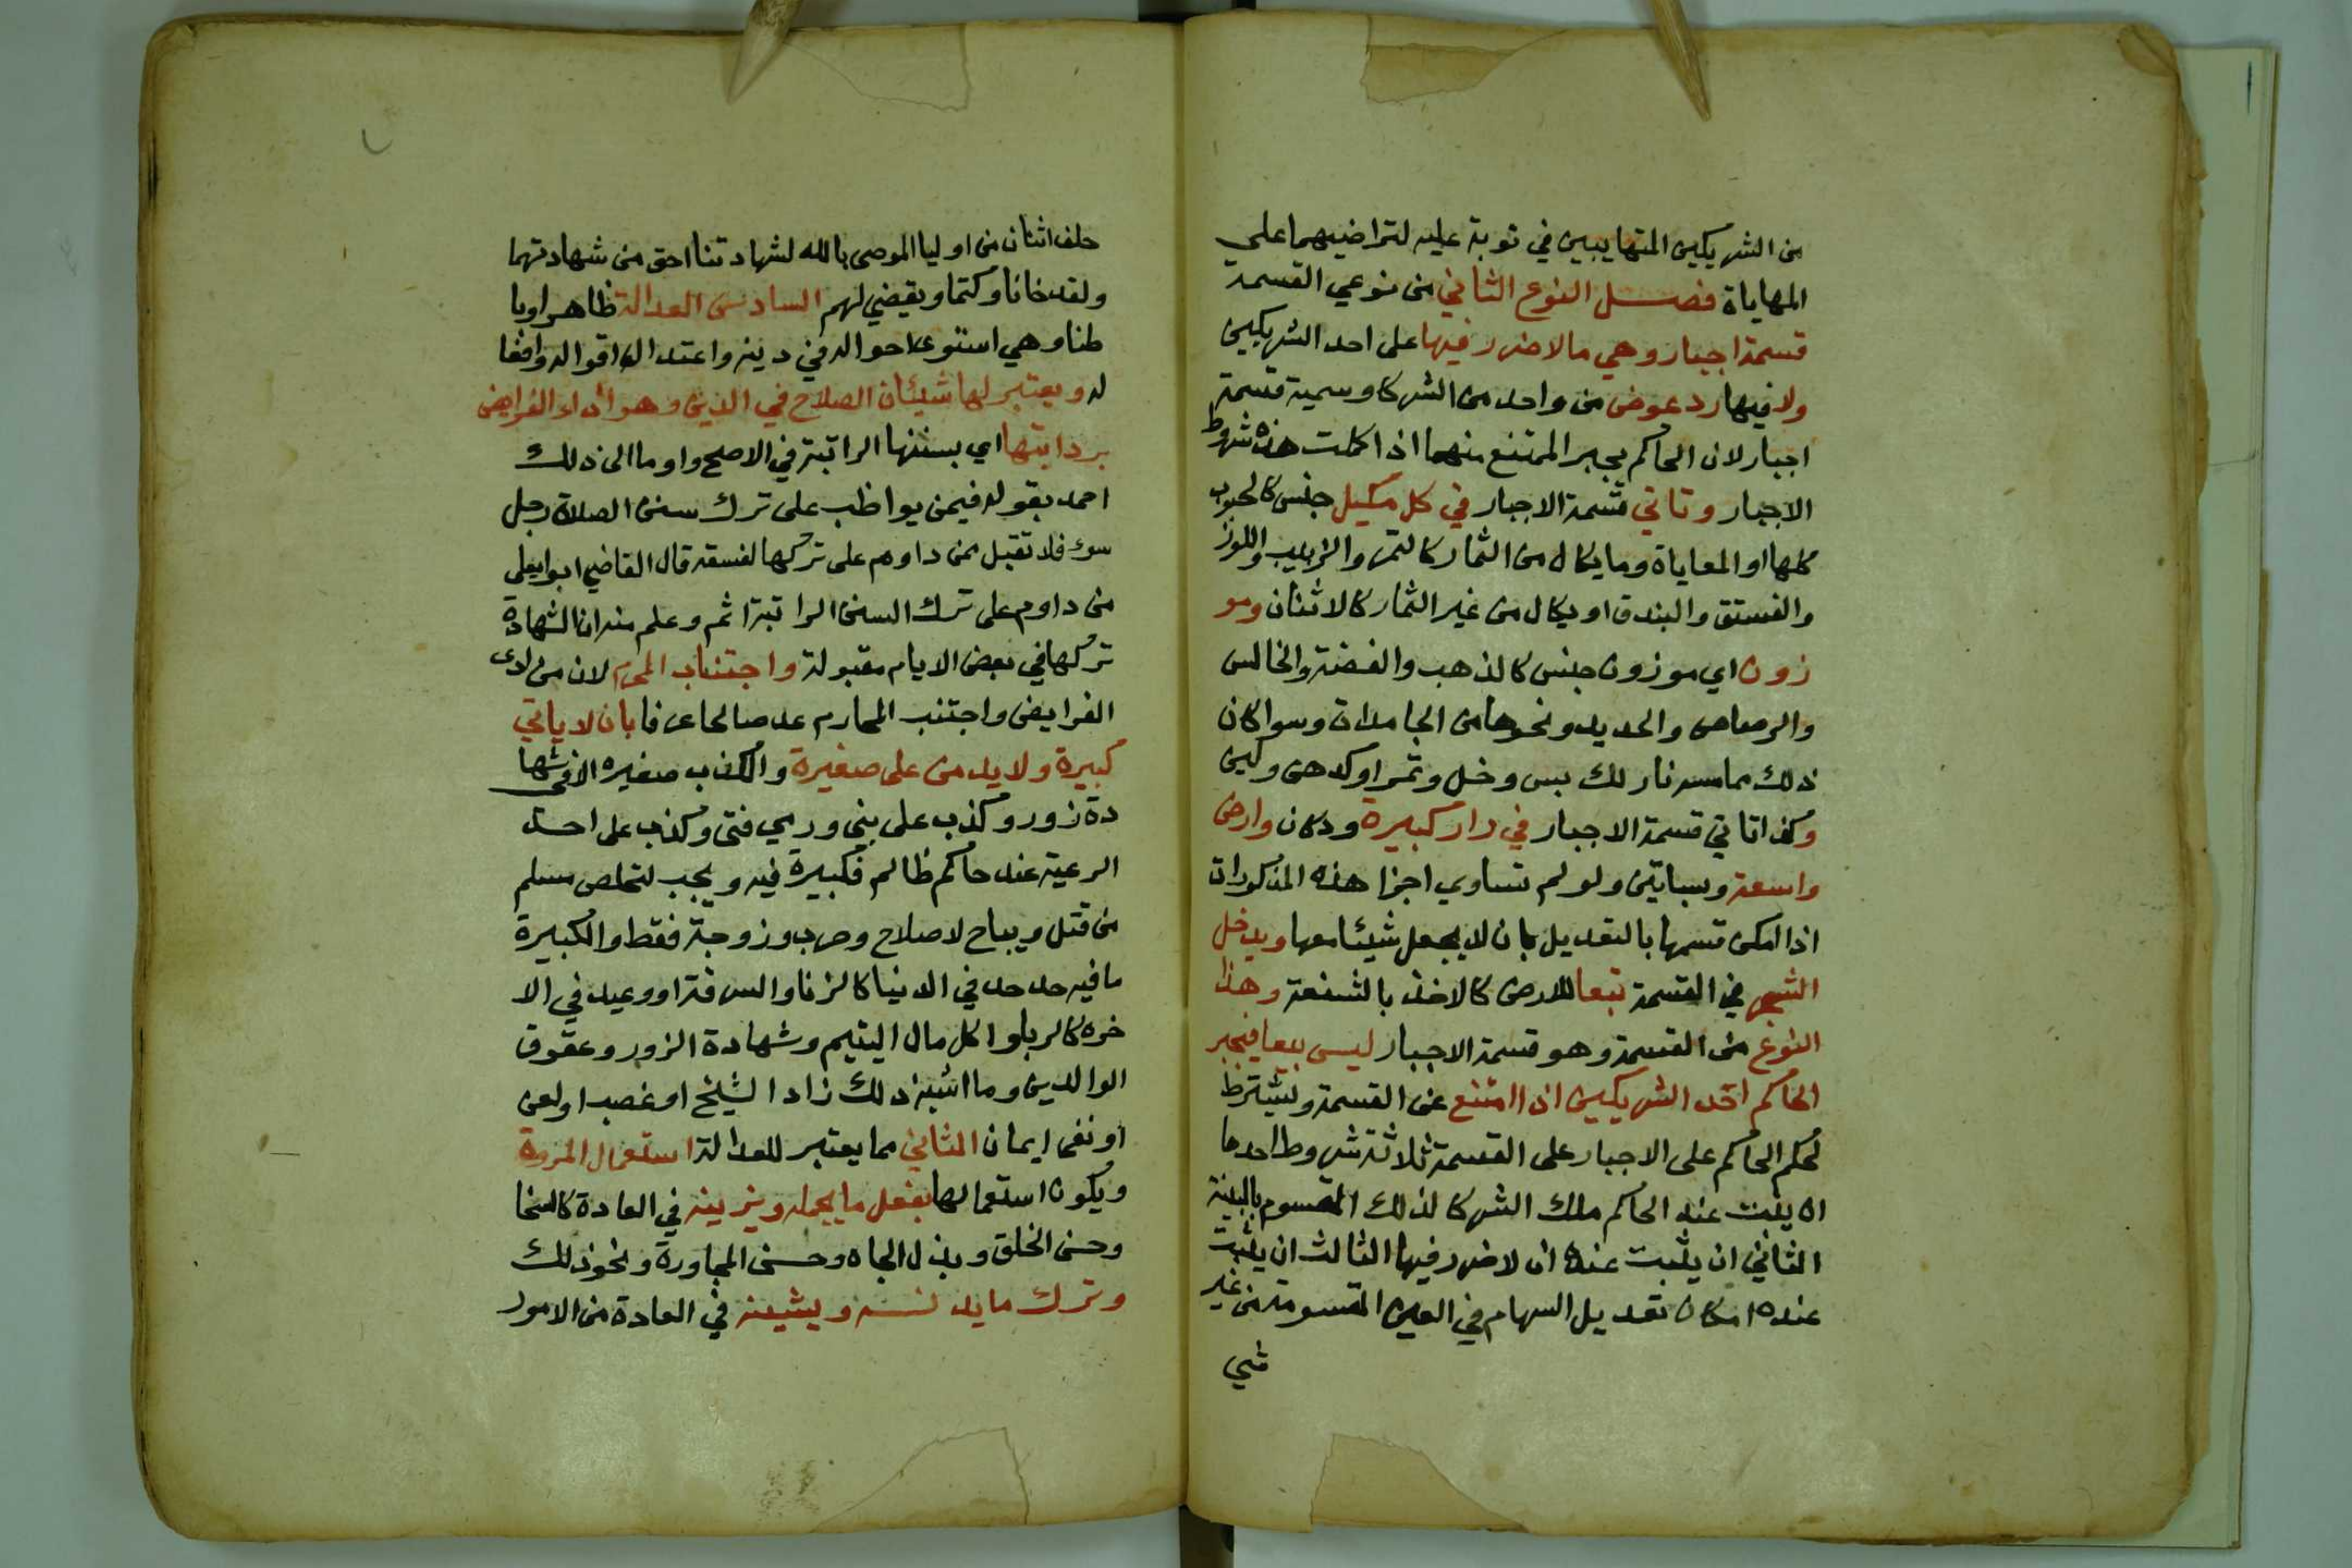 من الشريكين المتهايبين في نوبة عليه لتراضيهما علي
المهاياة فصل النوع الثاني من نوعي القسمة
قسمة اجبار وهي مالا ضرر فيها على احد الشريكين
ولا فيها رد عوض من واحد من الشركا وسمية قسمة
اجبار لان الحاكم يجبر الممتنع منهما اذا كملت هذه شروط
الاجبار وتاتي قسمة الاجبار في كل مكيل جنس كالحبوب
كلها او المعاياة وما يكال من الثمار كالتمر والزبيب واللوز
والفستق والبندق او يكال من غير الثمار كالاثنان ومو
زون اي موزون جنس كالذهب والفضة والنحالس
والرصاص والحديد ونحوها من الجامدات وسوا كان
ذلك مما مسه نار لك بس وخل وتمر اوكدهن وكبن
وكذا تاتي قسمة الاجبار في دار كبيرة ودكان وارض
واسعة وبساتين ولو لم تساوي اجزا هذه المذكورات
اذا امكن قسمها بالتعديل بان لا يجعل شيئا معها ويدخل
الشجر في القسمة تبعا للارض كالاخذ بالشفعة وهذا
النوع من القسمة وهو قسمة الاجبار ليس بيعا فيجبر
الحاكم احد الشريكين اذا امتنع عن القسمة ويشترط
لحكم الحاكم على الاجبار على القسمة ثلاثة شروط احدها
ان يثبت عند الحاكم ملك الشركا لذلك المقسوم بالبينة
الثاني ان يثبت عنده ان لا ضرر فيها الثالث ان يثبت
عنده امكان تعديل السهام في العين المقسومة من غير
شي
حلف اثنان من اوليا الموصي بالله لشهادتنا احق من شهادتهما
ولقد خانا وكتما ويقضي لهم السادس العدالة ظاهرا وبا
طنا وهي استوى احواله في دينه واعتدال اقواله وافعا
له ويعتبر لها شيئان الصلاح في الدين وهو اداء الفرايض
برداتبتها اي بسننها الراتبة في الاصح واوما الى ذلك
احمد بقوله فيمن يواظب على ترك سنن الصلاة رجل
سوء فلا تقبل ممن داوم على تركها لفسقه قال القاضي ابو يعلى
من داوم على ترك السنن الراتبة اثم وعلم منه ان الشهادة
تركها في بعض الايام مقبولة واجتناب المحرم لان من ادى
الفرايض واجتنب المحارم عد صالحا عرفا بان لا ياتي
كبيرة ولا يدمن على صغيرة والكذب صغيره الا في شها
دة زور وكذب على نبي ورمي فتى وكذب على احد
الرعية عند حاكم ظالم فكبيرة فيه ويجب لتخلص مسلم
من قتل ويباح لاصلاح وحرب وزوجة فقط والكبيرة
ما فيه حد حد في الدنيا كالزنا والسرقة او وعيد في الا
خره كالربا واكل مال اليتيم وشهادة الزور وعقوق
الوالدين وما اشبه ذلك زاد الشيخ او غصب او لعن
او نفى ايمان الثاني مما يعتبر للعدالة استعمال المروة
ويكون استعمالها بفعل ما يجمله ويزينه في العادة كالسخا
وحسن الخلق وبذل الجاه وحسن المجاورة ونحو ذلك
وترك ما يدنسه ويشينه في العادة من الامور